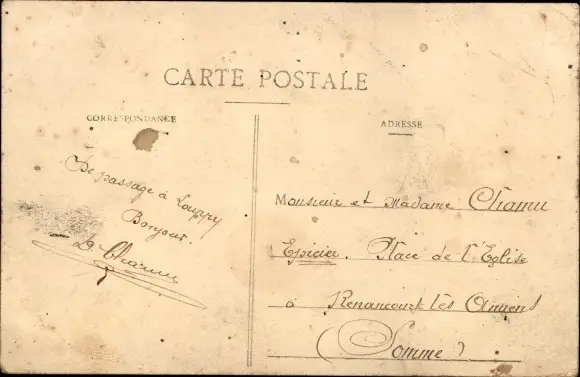 CARTE POSTALE
CORRESPONDANCE
De passage à Louppy
Bonjour.
D. Chamu
ADRESSE
Monsieur et Madame Chamu
Epicier. Place de l'Eglise
à Renancourt lès Amiens
(Somme)